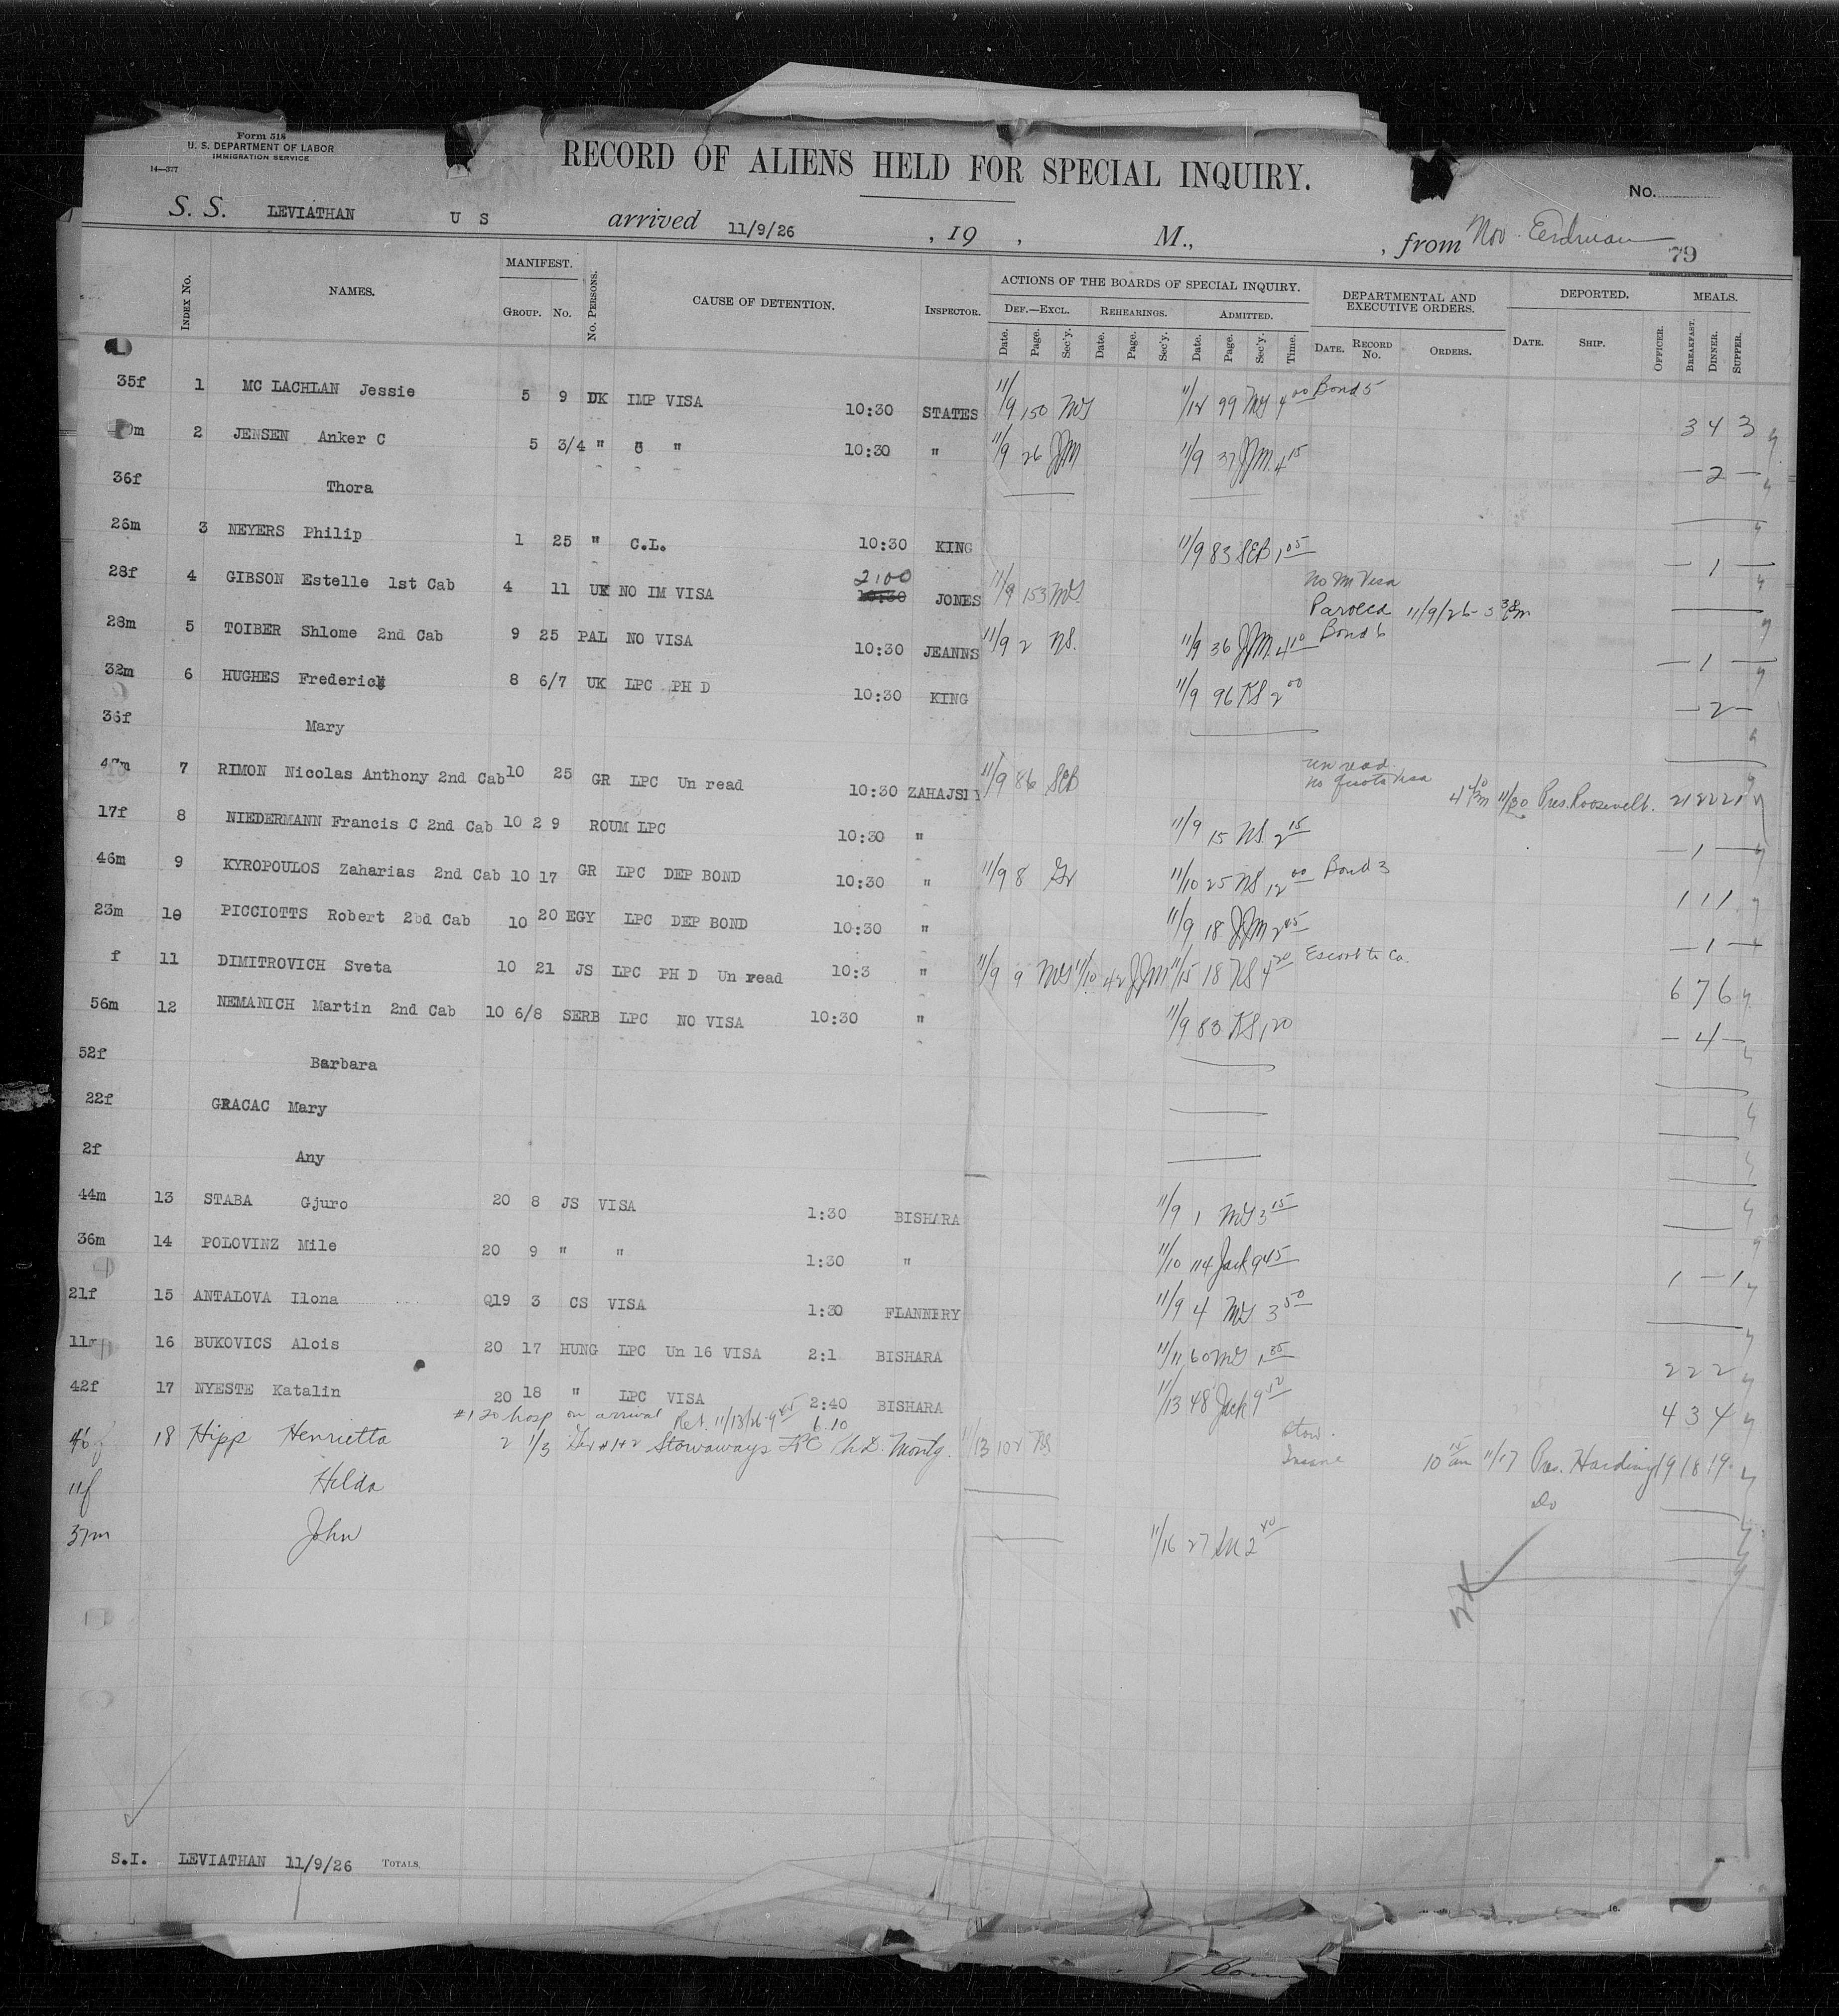 Form 518
U. S. DEPARTMENT OF LABOR
IMMIGRATION SERVICE
14—377
RECORD OF ALIENS HELD FOR SPECIAL INQUIRY.
No.
S. S. LEVIATHAN U S arrived 11/9/26 , 19 , M., , from
79
INDEX No. NAMES. MANIFEST. GROUP. No. No. PERSONS. CAUSE OF DETENTION. INSPECTOR.
ACTIONS OF THE BOARDS OF SPECIAL INQUIRY. DEF.—EXCL. REHEARINGS. ADMITTED.
Date. Page. Sec'y. Date. Page. Sec'y. Date. Page. Sec'y. Time.
DEPARTMENTAL AND EXECUTIVE ORDERS. DATE. RECORD No. ORDERS.
DEPORTED. DATE. SHIP. OFFICER. MEALS. BREAKFAST. DINNER. SUPPER.
35f 1 MC LACHLAN Jessie 5 9 UK IMP VISA 10:30 STATES 11/9 150 11/12 99 4 00 Bond 5 3 4 3
2 JENSEN Anker C 5 3/4 " " 10:30 " 11/9 26 JJM 11/9 37 JJM 4 15 — 2 —
36f Thora
26m 3 NEYERS Philip 1 25 " C.L. 10:30 KING 11/9 83 SEB 1 05 — 1 —
28f 4 GIBSON Estelle 1st Cab 4 11 UK NO IM VISA 10:30 2:00 JONES 11/9 153 No Im Visa Paroled 11/9/26
28m 5 TOIBER Shlome 2nd Cab 9 25 PAL NO VISA 10:30 JEANNS 11/9 2 NS. 11/9 36 JJM 4 10 Bond 6 — 1 —
32m 6 HUGHES Frederick 8 6/7 UK LPC PH D 10:30 KING 11/9 96 KS 2 00 — 2 —
36f Mary
7 RIMON Nicolas Anthony 2nd Cab 10 25 GR LPC Un read 10:30 ZAHAJSKY 11/9 86 SEB un read no quota visa 11/30 Pres. Roosevelt. 21 22 21
17f 8 NIEDERMANN Francis C 2nd Cab 10 2 9 ROUM LPC 10:30 " 11/9 15 NS 2 15 — 1 —
46m 9 KYROPOULOS Zaharias 2nd Cab 10 17 GR LPC DEP BOND 10:30 " 11/9 8 11/10 25 NS 12 00 Bond 3 1 1 1
23m 10 PICCIOTTS Robert 2bd Cab 10 20 EGY LPC DEP BOND 10:30 " 11/9 18 JJM — 1 —
f 11 DIMITROVICH Sveta 10 21 JS LPC PH D Un read 10:3 " 11/9 9 11/10 42 JJM 11/15 18 KS 4 20 Escort to Co. 6 7 6
56m 12 NEMANICH Martin 2nd Cab 10 6/8 SERB LPC NO VISA 10:30 " 11/9 83 KS 1 20 — 4 —
52f Barbara
22f GRACAC Mary
2f Any
44m 13 STABA Gjuro 20 8 JS VISA 1:30 BISHARA 11/9 1 3 15
36m 14 POLOVINZ Mile 20 9 " " 1:30 " 11/10 114 Jack 9 45 1 — 1
21f 15 ANTALOVA Ilona Q19 3 CS VISA 1:30 FLANNERY 11/9 4 3 50
16 BUKOVICS Alois 20 17 HUNG LPC Un 16 VISA 2:1 BISHARA 11/11 60 2 2 2
42f 17 NYESTE Katalin 20 18 " LPC VISA 2:40 BISHARA 11/13 48 Jack 9 50 4 3 4
hosp on arrival Ret. 11/13/26 6.10
18 Hipp Henrietta 2 1/3 Stowaways LPC 11/13 102 KS Stow. Insane 11/17 Pres. Harding 19 18 19
11f Hilda Do
37m John 11/16 27 2 40
S.I. LEVIATHAN 11/9/26 TOTALS.